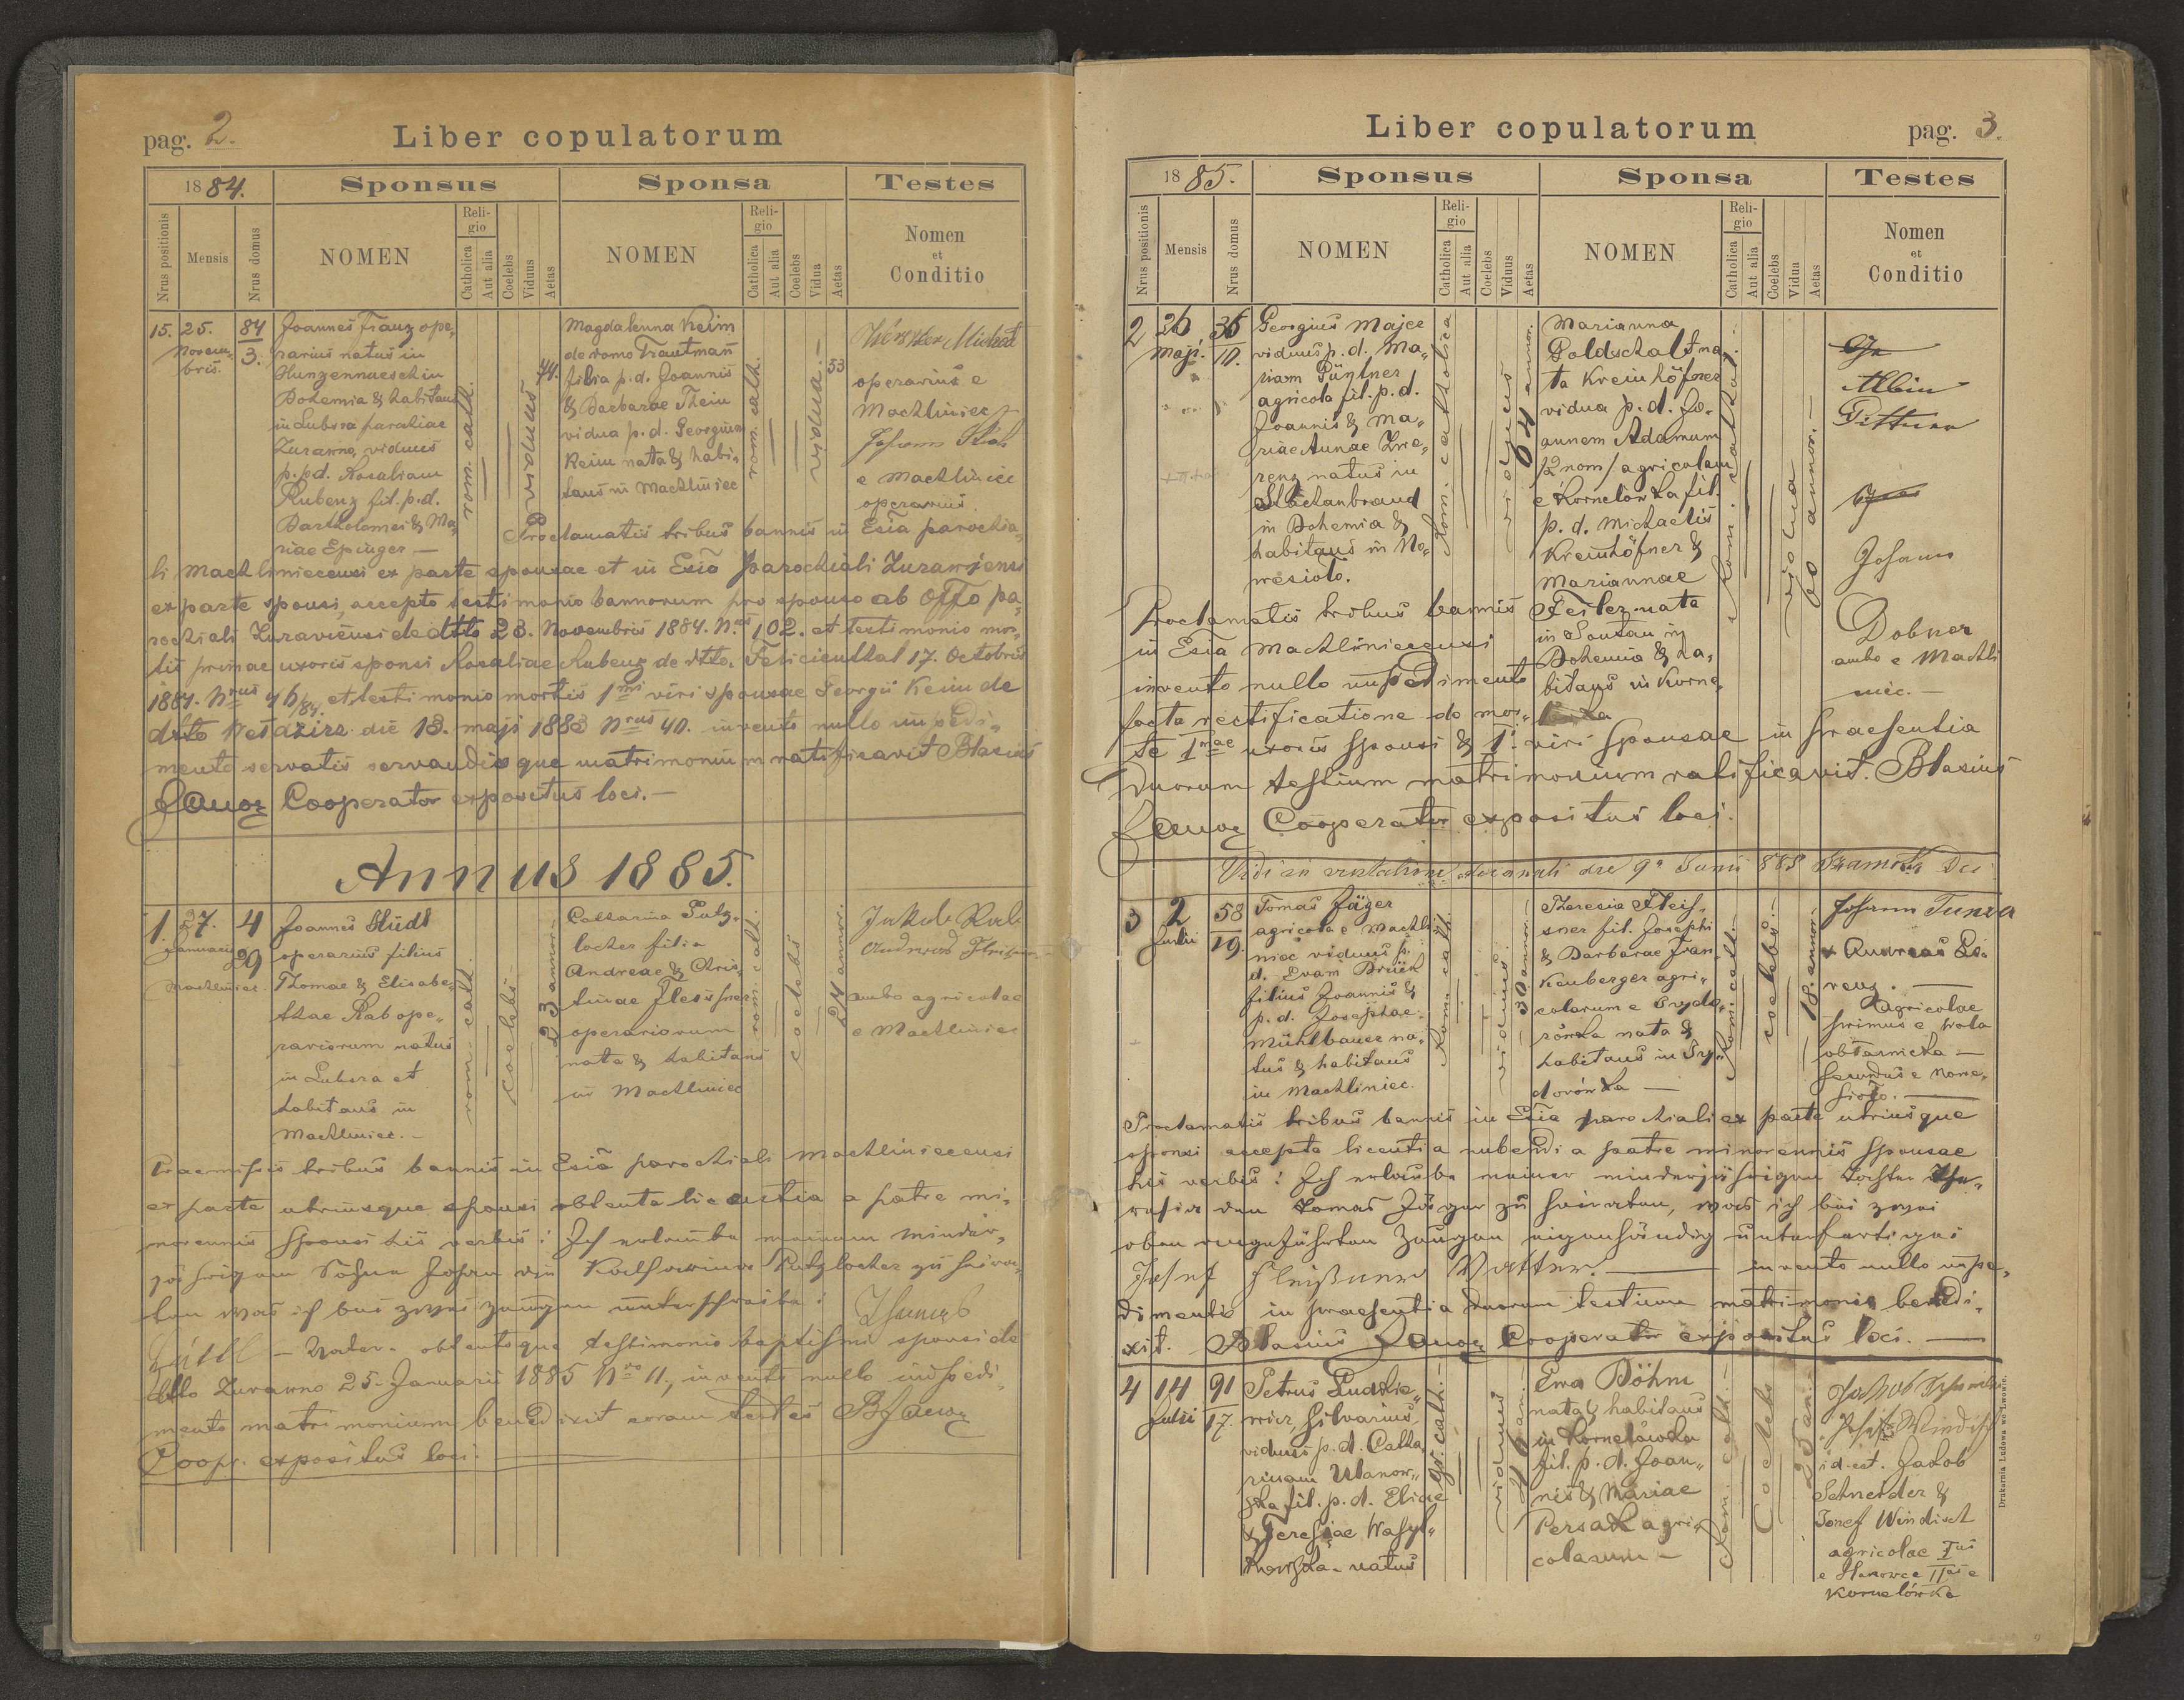 pag. 2.
Liber copulatorum
1884.
Sponsus
Sponsa
Testes
Nrus positionis
Mensis
Nrus domus
NOMEN
Religio
Catholica
Aut alia
Coelebs
Viduus
Aetas
NOMEN
Religio
Catholica
Aut alia
Coelebs
Vidua
Aetas
Nomen
et
Conditio
15.
25.
Novem-
bris.
84
3.
Joannes Franz ope-
rarius natus in
Bohemia & habitans
in Lubsza parochiae
Zurawno, viduus
p.p.d. Rosaliam
Rubenz fil. p.d.
Bartholomei & Ma-
riae Epinger —
rom. cath.
viduus
44.
Magdalenna Keim
de domo Trautman
filia p.d. Joannis
& Barbarae Thein
vidua p.d. Georgium
Keim nata & habi-
tans in Machliniec
rom. cath.
vidua. —
53
operarius e
Machliniec
Johann
e Machliniec
operarius.
Proclamatis tribus bannis in Esia parochia-
li Machliniecensi ex parte sponsae et in Esia parochiali Zurawnensi
ex parte sponsi, accepto testimonio bannorum pro sponso ab Offo pa-
rochiali Zuraviensi de dtto 23. Novembris 1884. Nrus 102. et testimonio mor-
tis primae uxoris sponsi Rosaliae Rubenz de dtto. Felicienthal 17. Octobris
1884. Nrus 46/84. et testimonio mortis 1mi viri sponsae Georgii Keim de
dtto die 13. maji 1883 Nrus 40. invento nullo impedi-
mento servatis servandisque matrimonium ratificavit Blasius
Jauoz Cooperator expositus loci. —
Annus 1885.
1.
27.
Januarij
Machliniec.
4
29
Joannes Hüdl
operarius filius
Thomae & Elisabe-
thae Rab ope-
rariorum natus
in Lubsza et
habitans in
Machliniec. —
rom. cath.
coelebs
23 annor.
Catharina Putz-
locher filia
Andreae & Chris-
tinae Fleissner
operariorum
nata & habitans
in Machliniec
rom. cath.
coelebs
24 annor.
Jakob Rab
Andreas
ambo agricolae
e Machliniec
Praemissis tribus bannis in Esia parochiali Machliniecensi
ex parte utriusque sponsi obtenta licentia a patre mi-
norennis Sponsi his verbis: Ich erlaube meinem minder-
jährigen Sohne Johan die Katharina Putzlocher zu heira-
ten was ich bei zwei Zeugen unterschreibe:
— Vater. obtentoque testimonio baptismi sponsi de
dtto Zurawno 25. Januarii 1885 Nro 11, invento nullo impedi-
mento matrimonium benedixit coram testes B Jauoz
Coopr. expositus loci.
pag. 3.
Liber copulatorum
1885.
Sponsus
Sponsa
Testes
Nrus positionis
Mensis
Nrus domus
NOMEN
Religio
Catholica
Aut alia
Coelebs
Viduus
Aetas
NOMEN
Religio
Catholica
Aut alia
Coelebs
Vidua
Aetas
Nomen
et
Conditio
2
26
Maji.
36
10.
Georgius Majer
viduus p.d. Ma-
riam Püntner
agricola fil. p.d.
Joannis & Ma-
riae Annae Zwe-
renz natus in
in Bohemia &
habitans in No-
wesioło.
Rom. catholica
viduus
64 annor.
Marianna
Goldschalt na-
ta Kreinhöfner
vidua p.d. Jo-
annem Adamum
/2 nom/ agricolam
e Kornelówka fil.
p.d. Michaelis
Kreinhöfner &
Mariannae
Feiler nata
in Santau in
Bohemia & ha-
bitans in Korne-
lówka
Rom. cathol. —
vidua
60 annor. —
Albin
Pittner
Johann
Dobner
ambo e Machli
niec. —
Proclamatis tribus bannis
in Esia Machliniecensi
invento nullo impedimento
facta rectificatione do mor-
te 1mae uxoris Sponsi & 1i viri Sponsae in praesentia
Duorum testium matrimonium ratificavit. Blasius
Jauoz Cooperator expositus loci.
Vidi in visitatione decanali die 9a Junii 885
3
2
Julii
58
19.
Tomas Jäger
agricola e Machli
niec viduus p.
d. Evam Brück
filius Joannis &
p.d. Josephae
Mühlbauer na-
tus & habitans
in Machliniec.
Rom. cath.
viduus.
30 annor. —
Theresia Fleis-
sner fil. Josephi
& Barbarae Fran
kenberger agri-
colarum e Izydo-
rówka nata &
habitans in Izy-
dorówka —
Rom. cath. —
coelebs. —
18. annor. —
Johann Tunza
x Andreas Lo-
renz. —
Agricolae
primus e Wola
obłaznicka —
secundus e Nowe-
sioło. —
Proclamatis tribus bannis in Esia parochiali ex parte utriusque
sponsi accepta licentia nubendi a patre minorennis Sponsae
his verbis: Ich erlaube meiner minderjährigen Tochter The-
resia den Tomas Jäger zu heiraten, was ich bei zwei
oben angeführten Zeugen eigenhändig unterfertige
Josef Fleißner Vatter. — invento nullo impe-
dimento in praesentia duorum testium matrimonio benedi-
xit. Blasius Jauoz Cooperator expositus loci. —
4
14
Julii
91
17.
Petrus Ludkie-
wicz, silvarius,
viduus p.d. Catha
rinam Ulanow-
ska fil. p.d. Eliae
& Teresiae Wasyl-
kowska. natus
gr. cath. —
viduus
46 an. —
Ewa Böhm
nata & habitans
in Kornelówka
fil. p.d. Joan-
nis & Mariae
Persak agri-
colarum —
Rom. cath. —
Coelebs
23 an. —
Jakob Schneider
Josef Windisch
id est. Jakob
Schneider &
Jozef Windisch
agricolae Ius
e Hanowce IIus e
Kornelówka
Drukarnia Ludowa we Lwowie.